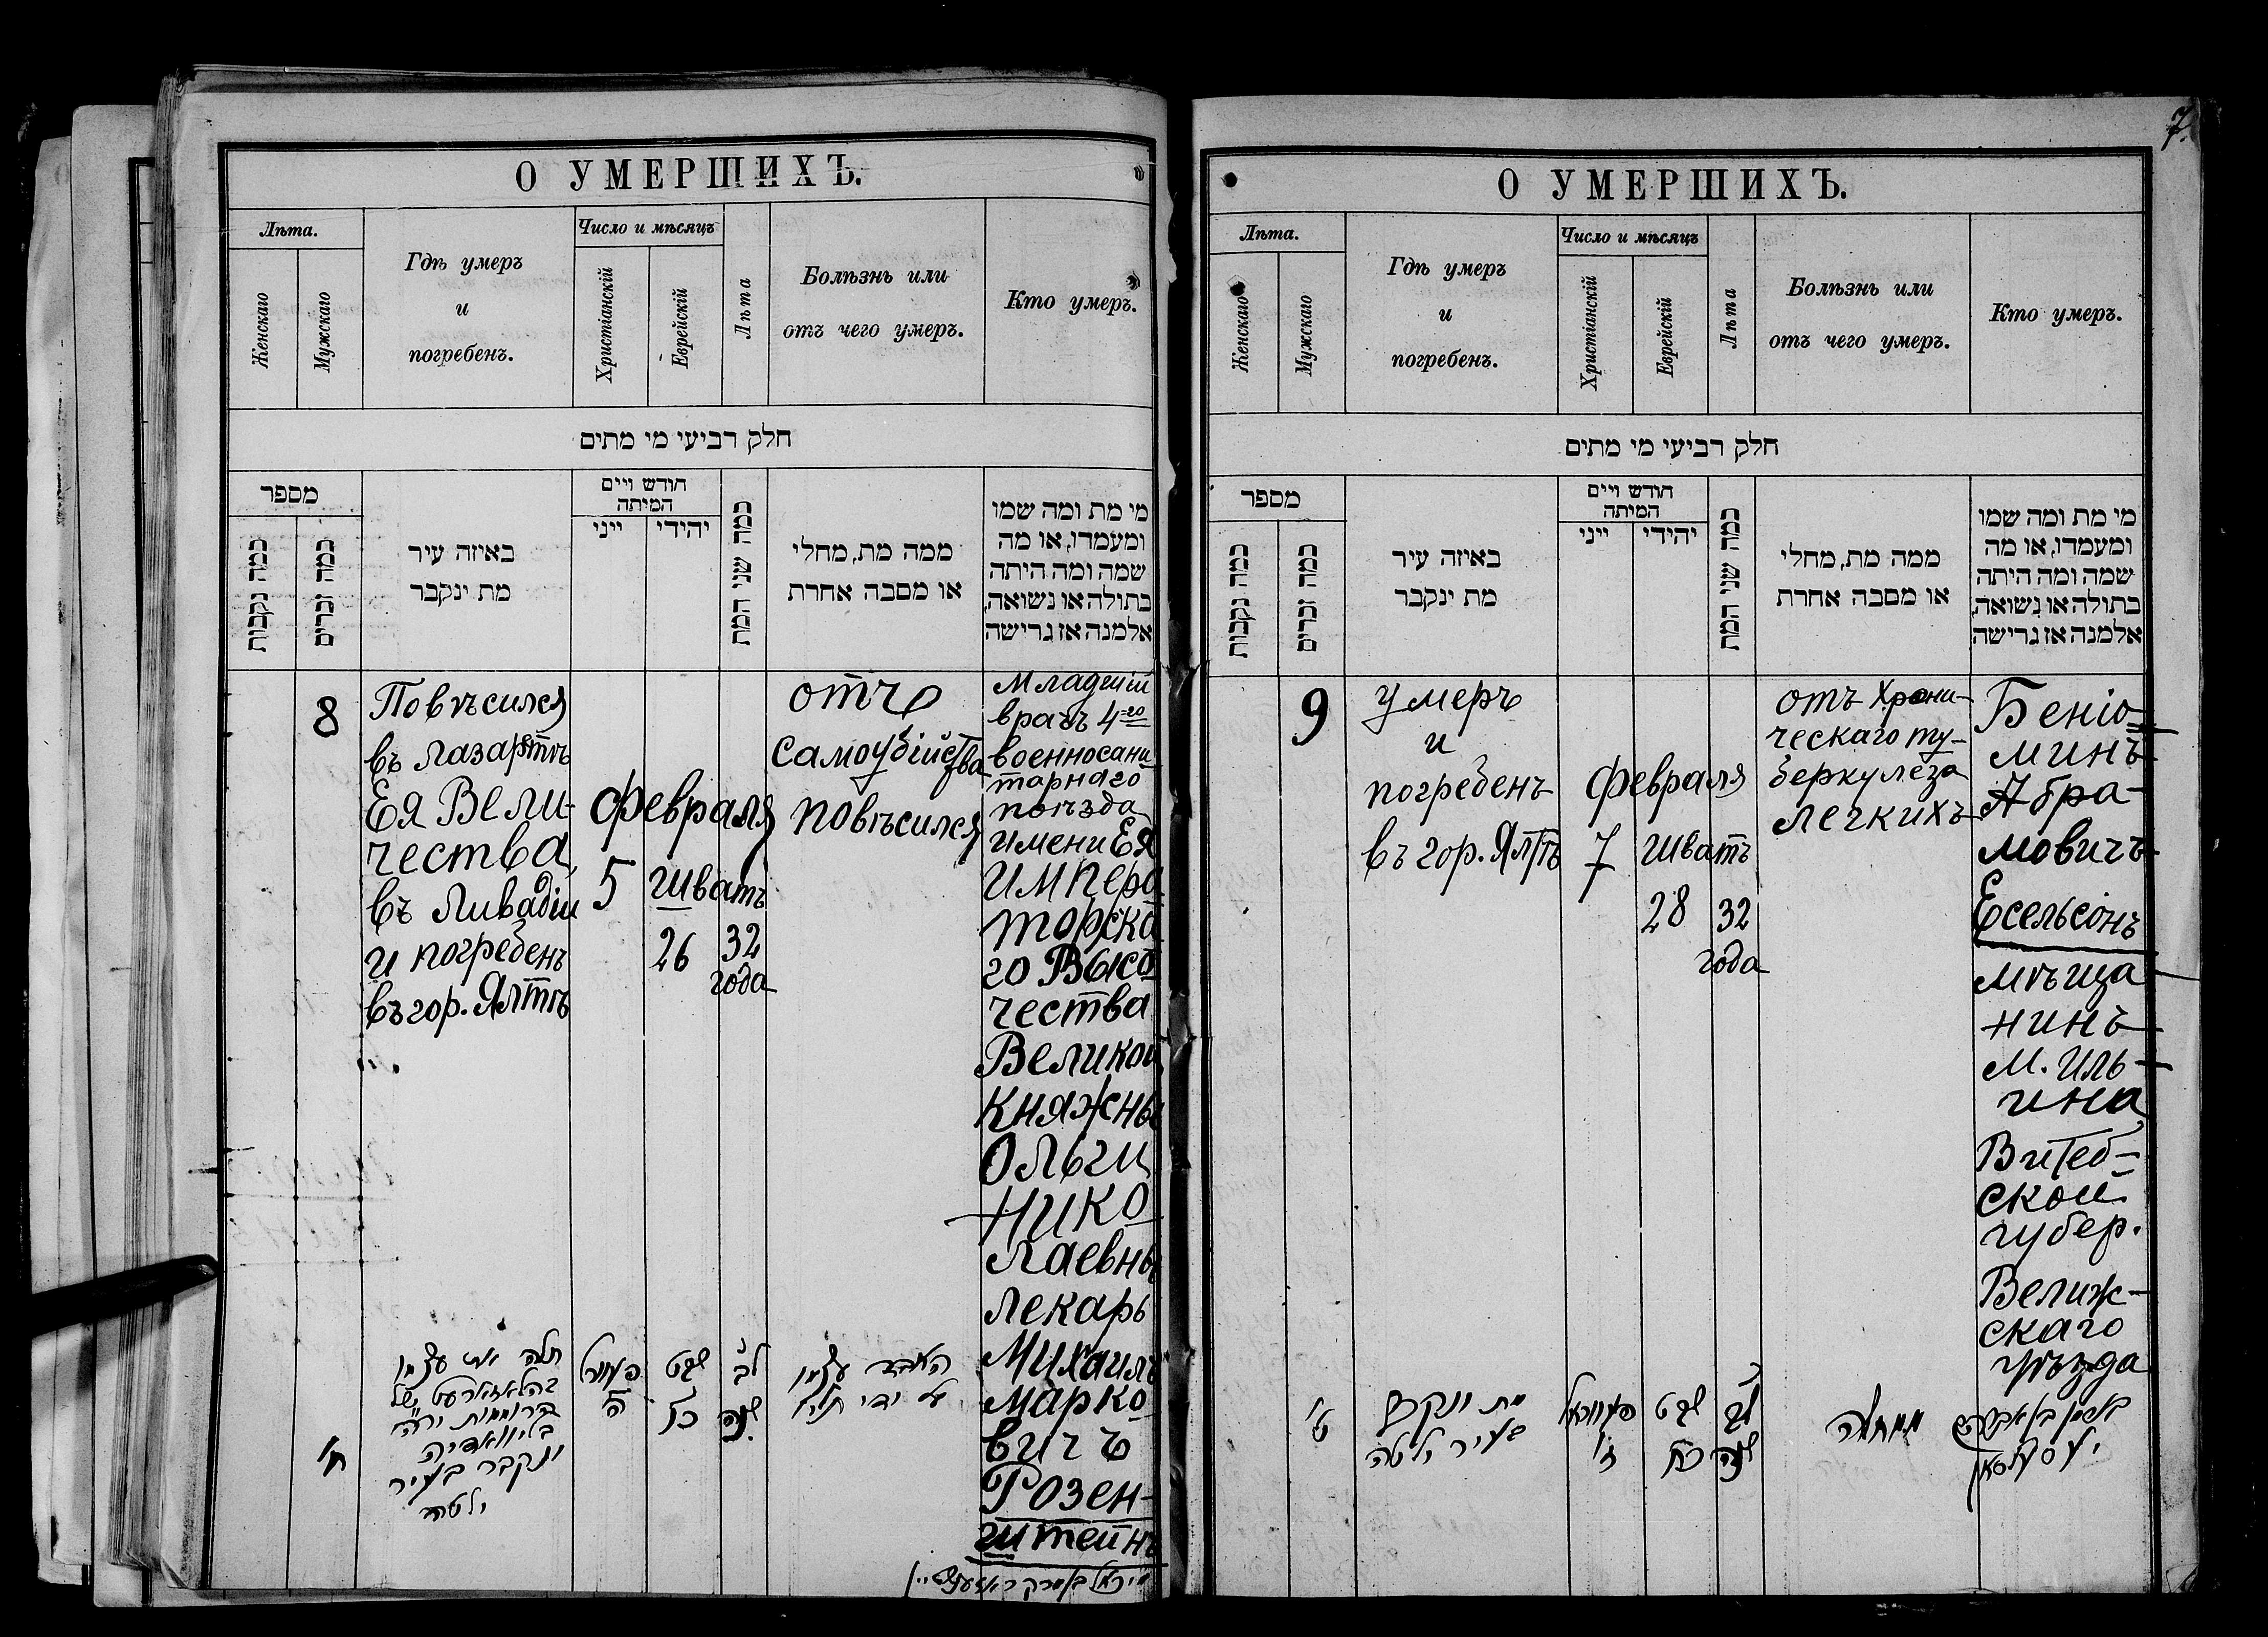 О УМЕРШИХЪ.
Лѣта.
Женскаго
Мужскаго
Гдѣ умеръ
и
погребенъ.
Число и мѣсяцъ
Христіанскій
Еврейскій
Лѣта
Болѣзнь или
отъ чего умеръ.
Кто умеръ.
חלק רביעי מי מתים
מספר
כמה נקבות
כמה זכרים
באיזה עיר
מת ינקבר
חודש ויים
המיתה
ייני
יהידי
כמה שני המת
ממה מת, מחלי
או מסבה אחרת
מי מת ומה שמו
ומעמדו, או מה
שמה ומה היתה
בתולה או נשואה,
אלמנה אז גרישה
8
Повѣсился
въ лазаретѣ
Ея Вели-
чества
въ Ливадіи
и погребенъ
въ гор. Ялтѣ
февраля
5
Шватъ
26
32
года
отъ
самоубійства
повѣсился
Младшій
врачъ 4-го
военносани
тарнаго
поѣзда
имени Ея
Импера
торска
го Высо
чества
Великой
Княжны
Ольги
Нико
лаевны
лекарь
Михаилъ
Марко
вичъ
Розен-
штейнъ
ח'
תלה את עצמו
בהלאזארעט של
הרוממות ירה
בליוואדיה
ונקבר בעיר
ילטה
פעוורל
ה'
שבט
כו
לב
שנה
האבד עצמו
על ידי תליה
7.
О УМЕРШИХЪ.
Лѣта.
Женскаго
Мужскаго
Гдѣ умеръ
и
погребенъ.
Число и мѣсяцъ
Христіанскій
Еврейскій
Лѣта
Болѣзнь или
отъ чего умеръ.
Кто умеръ.
חלק רביעי מי מתים
מספר
כמה נקבות
כמה זכרים
באיזה עיר
מת ינקבר
חודש ויים
המיתה
ייני
יהידי
כמה שני המת
ממה מת, מחלי
או מסבה אחרת
מי מת ומה שמו
ומעמדו, או מה
שמה ומה היתה
בתולה או נשואה,
אלמנה אז גרישה
9
Умеръ
и
погребенъ
въ гор. Ялтѣ
февраля
7
Шватъ
28
32
года
отъ Хрони-
ческаго ту-
беркулеза
легкихъ
Беніо-
минъ
Абра-
мовичъ
Есельсонъ
мѣща
нинъ
м. Иль-
ина
Витеб-
ской
губер.
Велиж-
скаго
уѣзда
ט'
מת ונקבר
בעיר ילטה
פעווראל
ז'
שבט
כח
לב
שנה
ממחלה